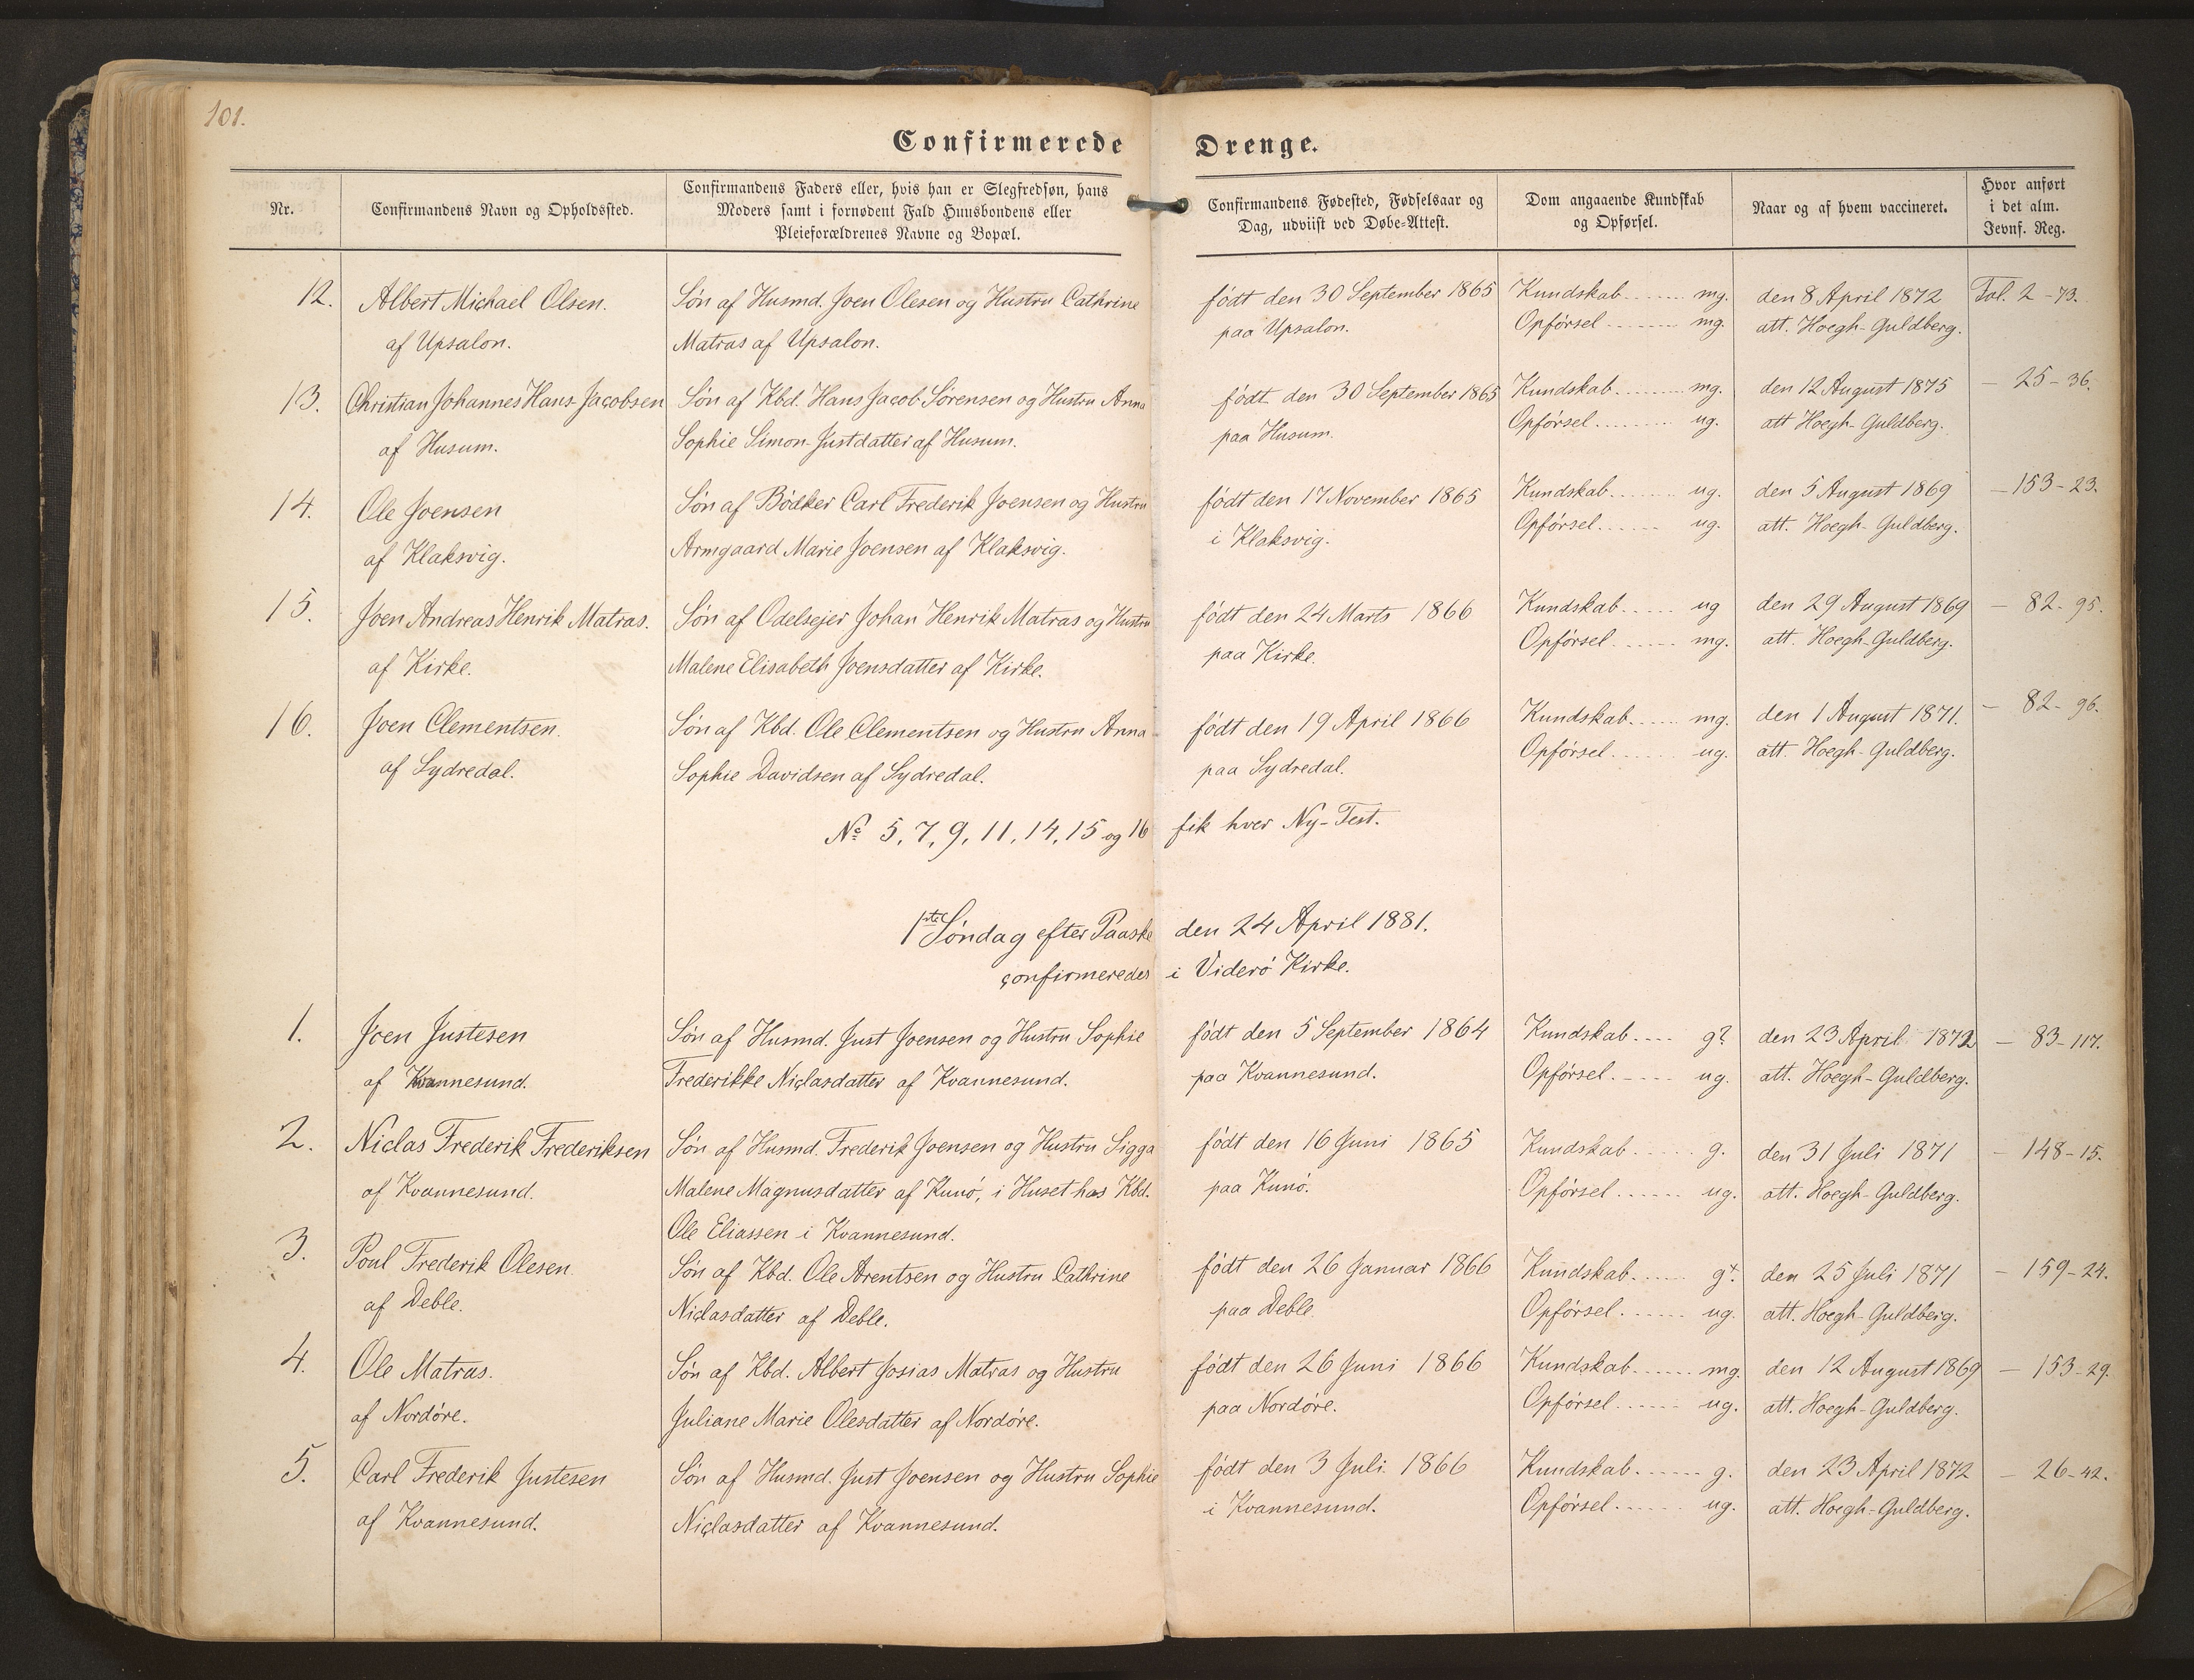 101.
Confirmerede Drenge.
Nr.
Confirmandens Navn og Opholdssted.
Confirmandens Faders eller, hvis han er Slegfredsøn, hans
Moders samt i fornødent Fald Huusbondens eller
Pleieforældrenes Navne og Bopæl.
Confirmandens Fødested, Fødselsaar og
Dag, udviist ved Døbe-Attest.
Dom angaaende Kundskab
og Opførsel.
Naar og af hvem vaccineret.
Hvor anført
i det alm.
Jevnf. Reg.
12.
Albert Michael Olsen.
af Upsalon.
Søn af Husmd. Joen Olesen og Hustru Cathrine
Matras af Upsalon.
født den 30 September 1865
paa Upsalon.
Kundskab ....... mg.
Opførsel ........ mg.
den 8 April 1872
att. Hoegh-Guldberg.
Fol. 2 - 73.
13.
Christian Johannes Hans-Jacobsen
af Husum.
Søn af Kbd. Hans Jacob Sørensen og Hustru Anna
Sophie Simon-Justdatter af Husum.
født den 30 September 1865
paa Husum.
Kundskab ........ mg.
Opførsel ........ ug.
den 12 August 1875
att Hoegh-Guldberg.
— 25 - 36.
14.
Ole Joensen
af Klaksvig.
Søn af Bødker Carl Frederik Joensen og Hustru
Armgaard Marie Joensen af Klaksvig.
født den 17 November 1865
i Klaksvig.
Kundskab ....... ug.
Opførsel ...... ug.
den 5 August 1869
att. Hoegh-Guldberg.
— 153 - 23.
15.
Joen Andreas Henrik Matras.
af Kirke.
Søn af Odelsejer Johan Henrik Matras og Hustru
Malene Elisabeth Joensdatter af Kirke.
født den 24 Marts 1866
paa Kirke.
Kundskab ..... ug
Opførsel ...... mg.
den 29 August 1869
att. Hoegh-Guldberg.
— 82 - 95.
16.
Joen Clementsen.
af Sydredal.
Søn af Kbd. Ole Clementsen og Hustru Anna
Sophie Davidsen af Sydredal.
født den 19 April 1866
paa Sydredal.
Kundskab ..... mg.
Opførsel ...... ug.
den 1 August 1871.
att. Hoegh-Guldberg.
— 82 - 96.
No 5, 7, 9, 11, 14, 15 og 16 fik hver Ny-Test.
1ste Søndag efter Paaske den 24 April 1881.
confirmeredes i Viderø Kirke.
1.
Joen Justesen
af Kvannesund.
Søn af Husmd. Just Joensen og Hustru Sophie
Frederikke Niclasdatter af Kvannesund.
født den 5 September 1864
paa Kvannesund.
Kundskab .... g?
Opførsel ..... ug.
den 23 April 1872
att. Hoegh-Guldberg.
— 83 - 117.
2.
Niclas Frederik Frederiksen
af Kvannesund.
Søn af Husmd. Frederik Joensen og Hustru Sigga
Malene Magnusdatter af Kunø, i Huset hos Kbd.
Ole Eliassen i Kvannesund.
født den 16 Juni 1865
paa Kunø.
Kundskab ..... g.
Opførsel ...... ug.
den 31 Juli 1871
att. Hoegh-Guldberg.
— 148 - 15.
3.
Poul Frederik Olesen
af Deble.
Søn af Kbd. Ole Arentsen og Hustru Cathrine
Niclasdatter af Deble.
født den 26 Januar 1866
paa Deble
Kundskab ..... g+.
Opførsel ...... ug.
den 25 Juli 1871
att. Hoegh-Guldberg.
— 159 - 24.
4.
Ole Matras.
af Nordøre.
Søn af Kbd. Albert Josias Matras og Hustru
Juliane Marie Olesdatter af Nordøre.
født den 26 Juni 1866
paa Nordøre.
Kundskab ...... mg.
Opførsel ...... ug.
den 12 August 1869
att. Hoegh-Guldberg.
— 153 - 29.
5.
Carl Frederik Justesen
af Kvannesund.
Søn af Husmd. Just Joensen og Hustru Sophie
Niclasdatter af Kvannesund.
født den 3 Juli 1866
i Kvannesund.
Kundskab ...... g.
Opførsel ...... ug.
den 23 April 1872
att. Hoegh-Guldberg.
— 26 - 42.